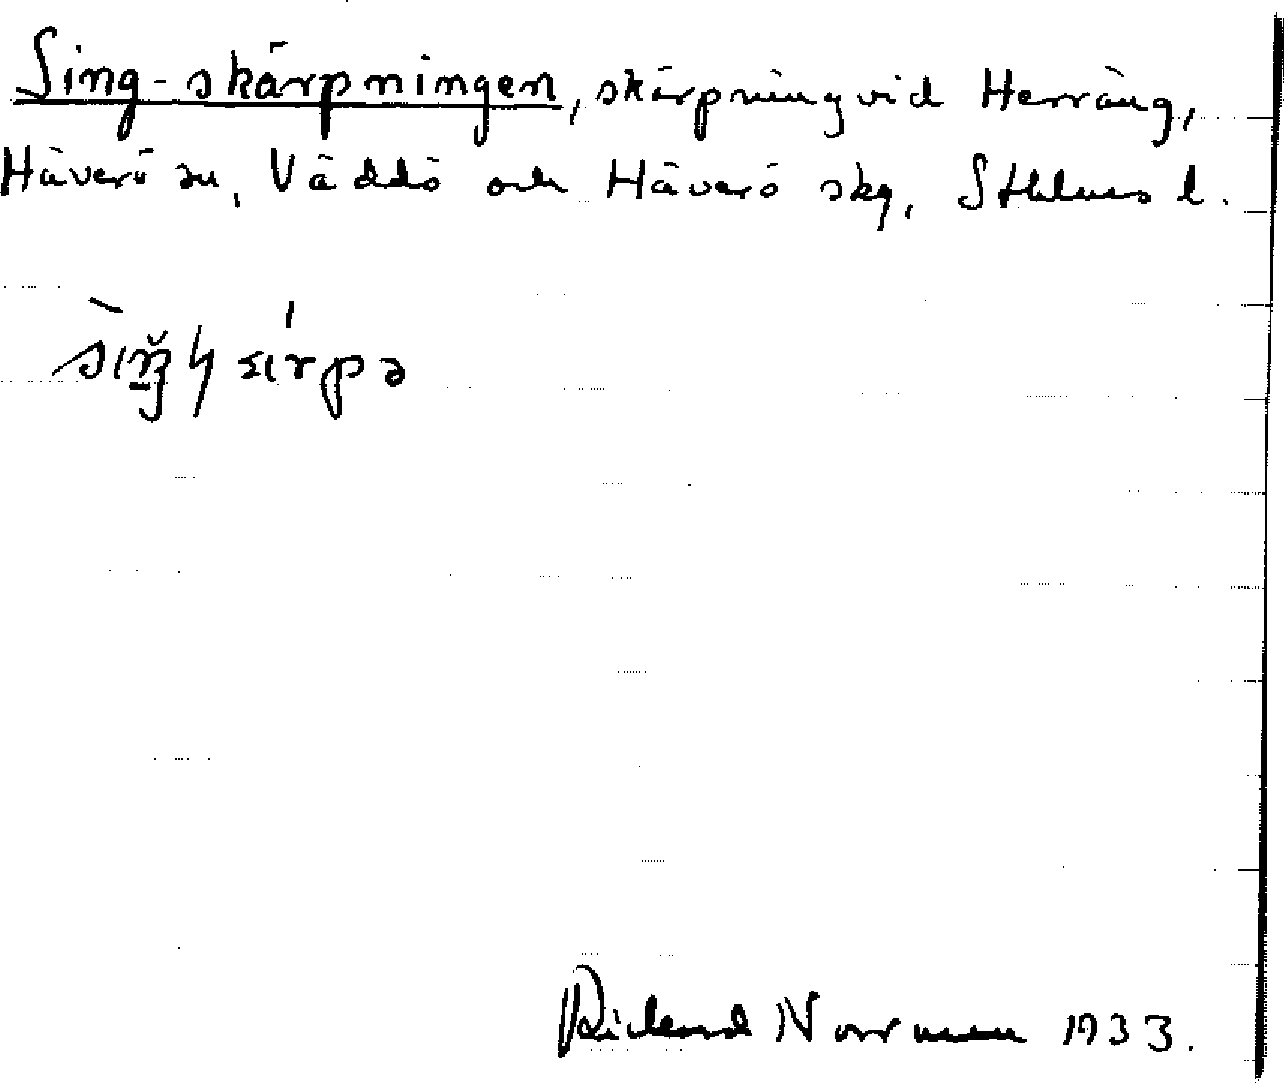 Sing-skärpningen, skärpning vid Herräng,
Häverö sn, Väddö och Häverö skg, Sthlms l.
Rickard Norrman 1933.